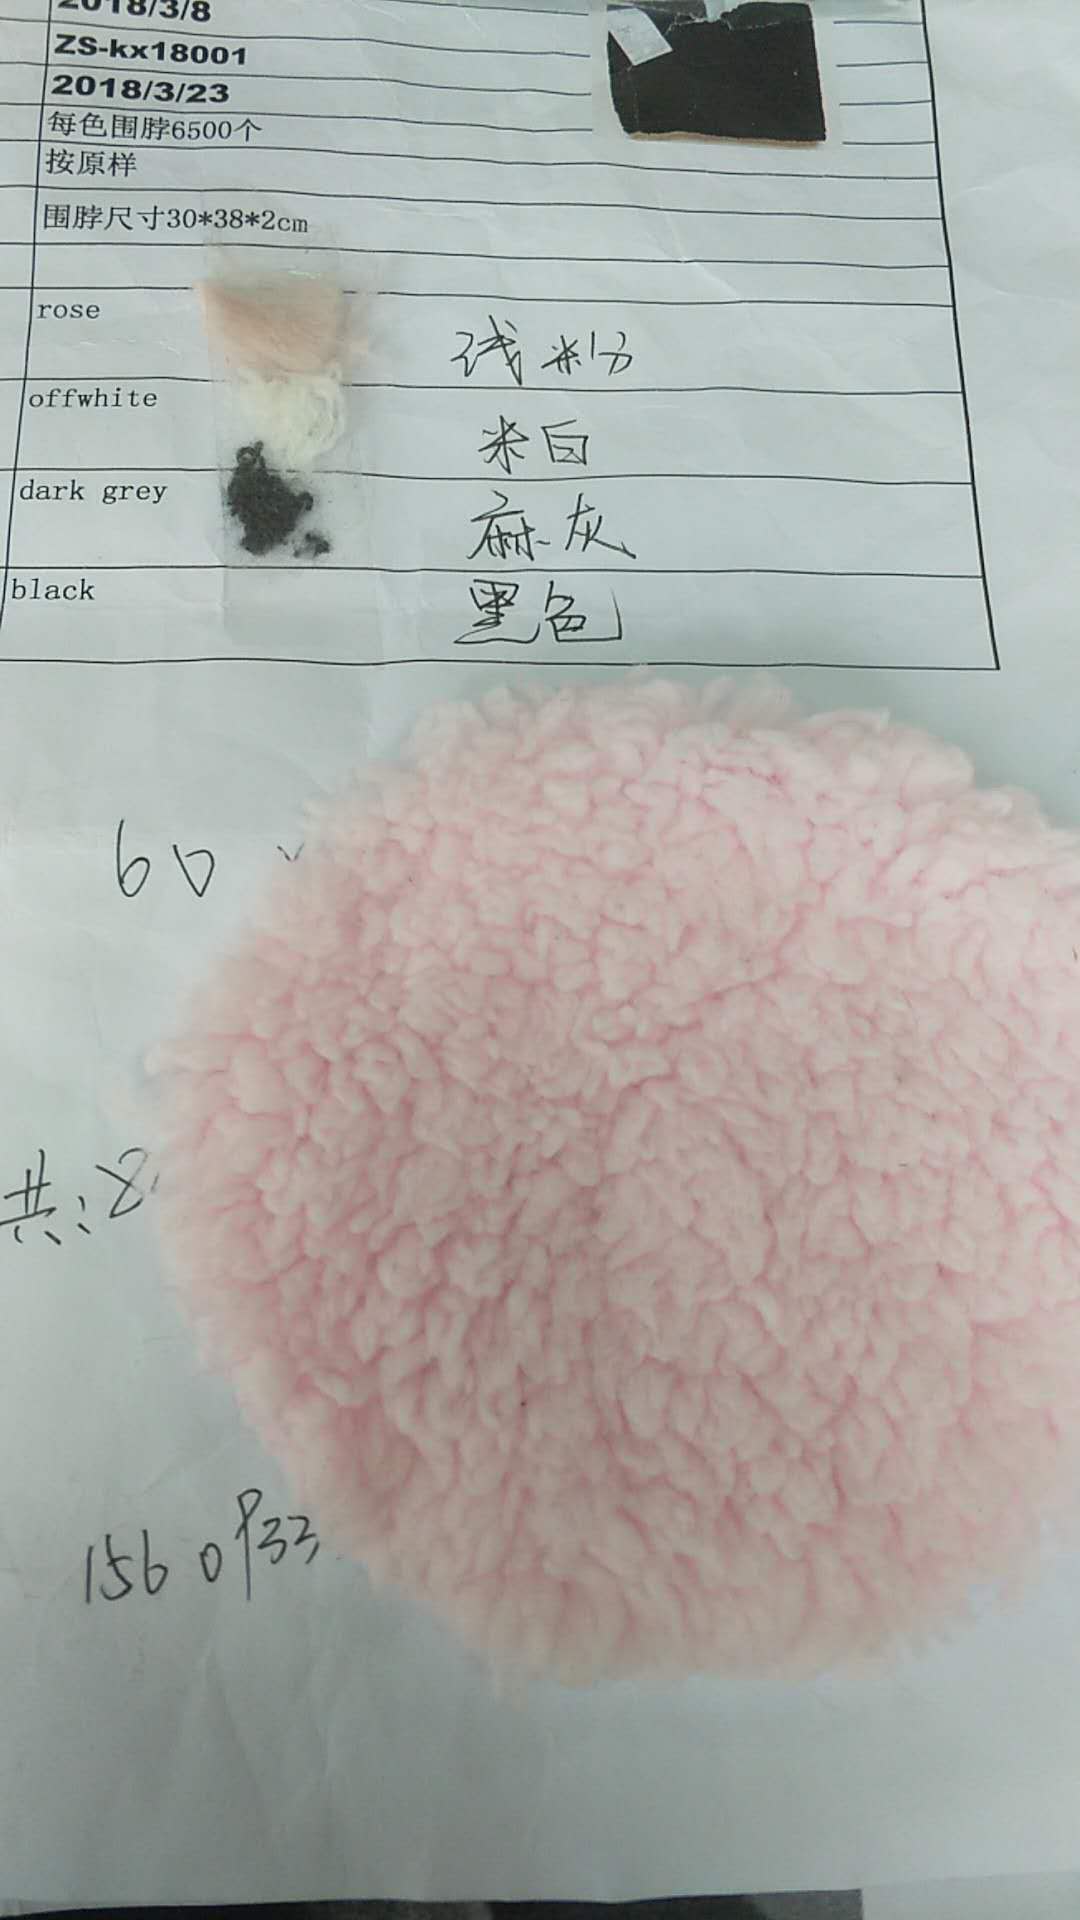 2018/3/8
ZS-kx18001
2018/3/23
每色围脖6500个
按原样
围脖尺寸30*38*2cm
rose
浅粉
offwhite
米白
dark grey
麻灰
black
黑色
60
共:8
1560P33